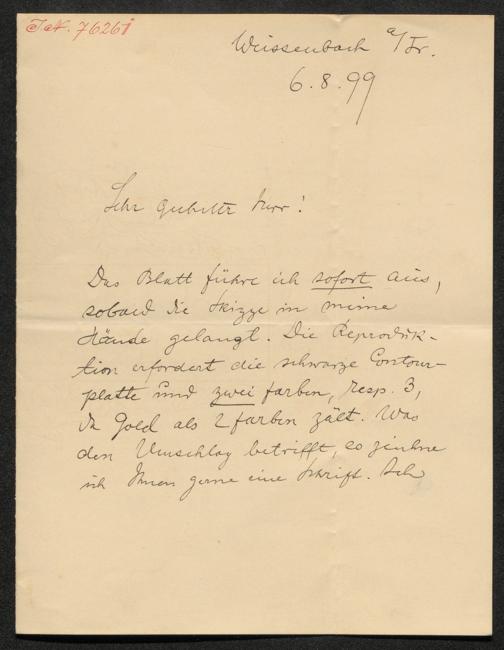 J.N. 76261
Weissenbach a/Tr.
6.8.99
Sehr geehrter Herr!
Das Blatt führe ich sofort aus,
sobald die Skizze in meine
Hände gelangt. Die Reproduk-
tion erfordert die schwarze Contour-
platte und zwei Farben, resp. 3,
da Gold als 2 Farben zält. Was
den Umschlag betrifft, so zeichne
ich Ihnen gerne eine Schrift. Ich